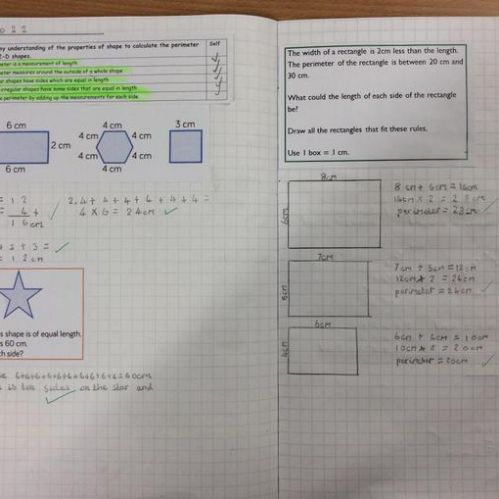 my understanding of the properties of shape to calculate the perimeter
2-D shapes.
Self
meter is a measurement of length
meter measures around the outside of a whole shape
shapes have sides which are equal in length
irregular shapes have some sides that are equal in length
perimeter by adding up the measurements for each side.
6 cm
2 cm
6 cm
4 cm
4 cm
4 cm
4 cm
4 cm
4 cm
3 cm
= 12
= 4 +
16cm
2. 4 + 4 + 4 + 4 + 4 + 4 =
4 x 6 = 24cm
+ 3 =
= 12cm
s shape is of equal length.
s 60 cm.
ch side?
6+6+6+6+6+6+6+6+6+6=60cm
sides on the star and
The width of a rectangle is 2cm less than the length.
The perimeter of the rectangle is between 20 cm and
30 cm.
What could the length of each side of the rectangle
be?
Draw all the rectangles that fit these rules.
Use 1 box = 1 cm.
8cm
6cm
8 cm + 6cm = 14cm
14cm x 2 = 28cm
perimeter = 28cm
7cm
5cm
7cm + 5cm = 12cm
12cm x 2 = 24cm
perimeter = 24cm
6cm
4cm
6cm + 4cm = 10cm
10cm x 2 = 20cm
perimeter = 20cm